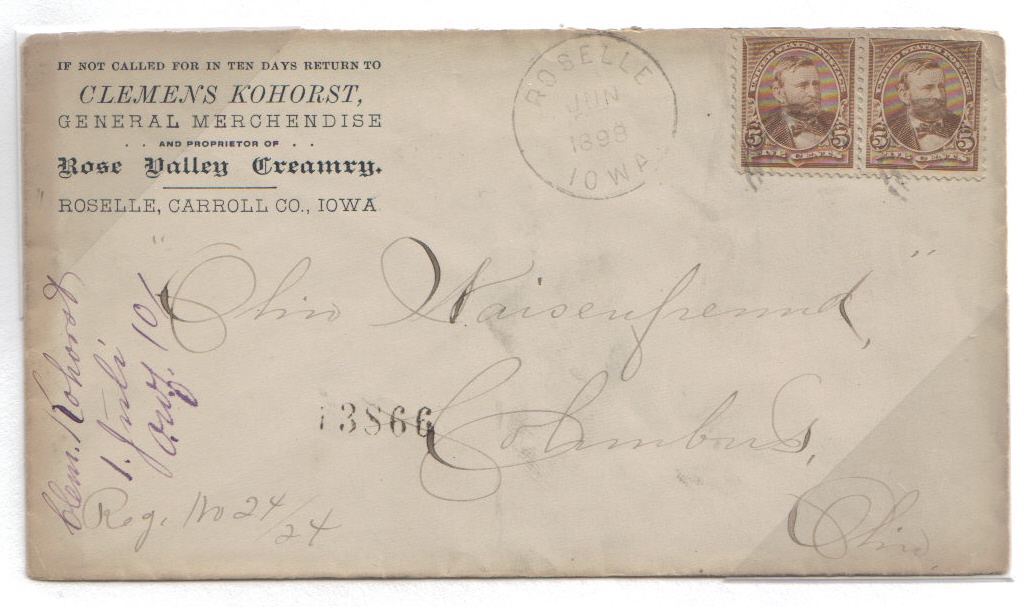 IF NOT CALLED FOR IN TEN DAYS RETURN TO
CLEMENS KOHORST,
GENERAL MERCHENDISE
. . AND PROPRIETOR OF . .
Rose Valley Creamry.
ROSELLE, CARROLL CO., IOWA
ROSELLE
JUN
1898
IOWA
UNITED STATES POSTAGE
5 5
UNITED STATES POSTAGE
5 5
"Ohio Waisenfreund",
Columbus,
Ohio
13866
Reg. No 24/24
Clem. Kohorst
1. Juli